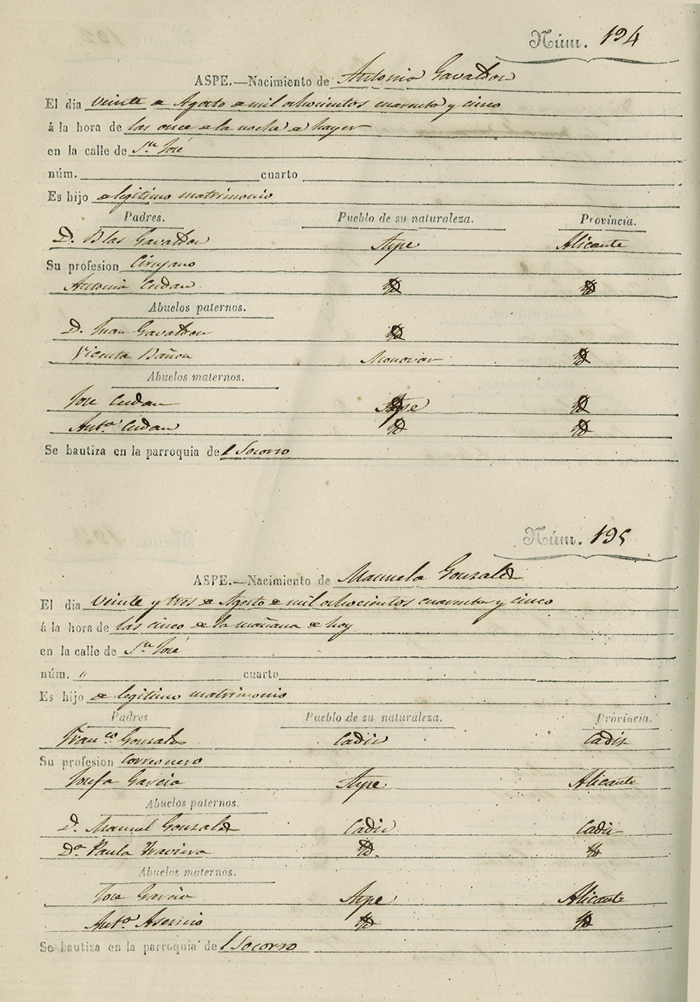 Núm. 194
ASPE.—Nacimiento de Antonio Gavaldon
El dia veinte de Agosto de mil ochocientos cuarenta y cinco
á la hora de las once de la noche de hayer
en la calle de Sn. José
núm. cuarto
Es hijo de legitimo matrimonio
Padres. Pueblo de su naturaleza. Provincia.
D. Blas Gavaldon Aspe Alicante
Su profesion Cirujano
Antonia Cerdan Yd Yd
Abuelos paternos.
D. Juan Gavaldon Yd
Vicenta Bañon Monovar Yd
Abuelos maternos.
Jose Cerdan Aspe Yd
Anta. Cerdan Yd Yd
Se bautiza en la parroquia del Socorro
Núm. 195
ASPE.—Nacimiento de Manuela Gonzalez
El dia veinte y tres de Agosto de mil ochocientos cuarenta y cinco
á la hora de las cinco de la mañana de hoy
en la calle de Sn. José
núm. " cuarto
Es hijo de legitimo matrimonio
Padres Pueblo de su naturaleza. Provincia.
Franco. Gonzalez Cadiz Cadiz
Su profesion
Josefa Garcia Aspe Alicante
Abuelos paternos.
D. Manuel Gonzalez Cadiz Cadiz
Da. Paula Yd. Yd
Abuelos maternos.
Jose Garcia Aspe Alicante
Anta. Asencio Yd Yd
Se bautiza en la parroquia del Socorro